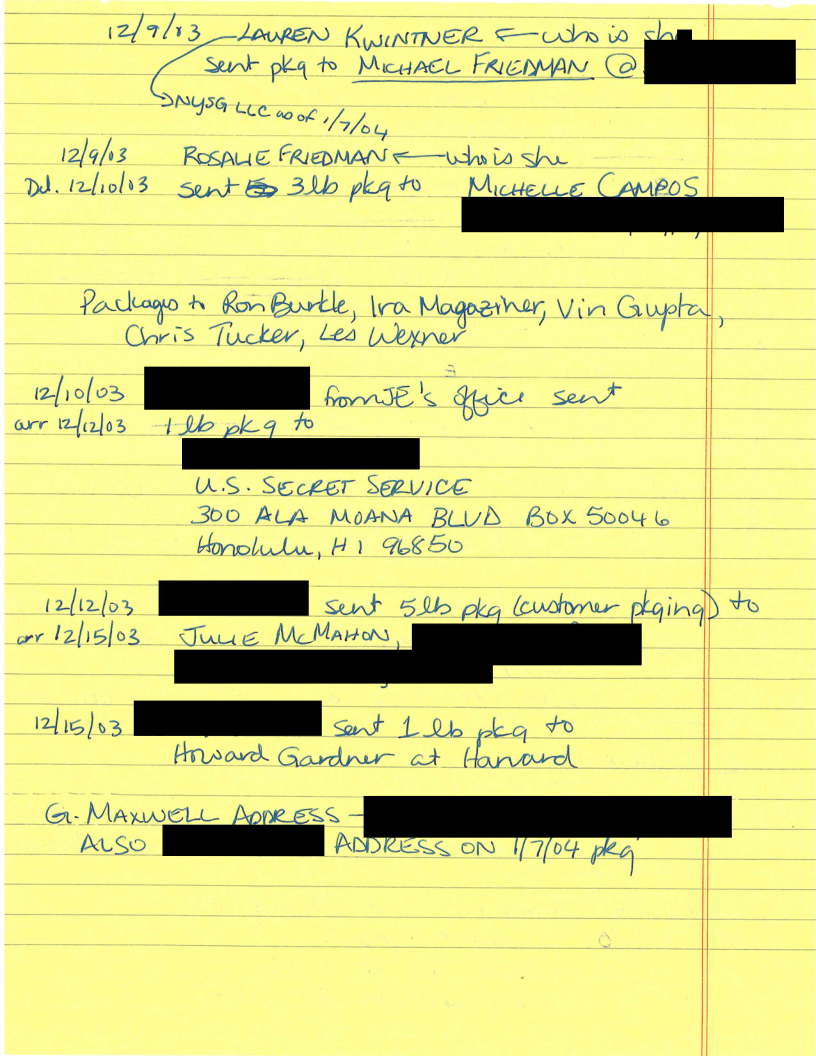 12/9/03 LAUREN KWINTNER ← who is she
sent pkg to MICHAEL FRIEDMAN @
→ NYSG LLC as of 1/7/04
12/9/03 ROSALIE FRIEDMAN ← who is she
Del. 12/10/03 sent 3 lb pkg to MICHELLE CAMPOS
Packages to Ron Burkle, Ira Magaziner, Vin Gupta,
Chris Tucker, Les Wexner
12/10/03 from JE's office sent
arr 12/12/03 1 lb pkg to
U.S. SECRET SERVICE
300 ALA MOANA BLVD BOX 50046
Honolulu, HI 96850
12/12/03 sent 5 lb pkg (customer pkging) to
arr 12/15/03 JULIE MCMAHON,
12/15/03 sent 1 lb pkg to
Howard Gardner at Harvard
G. MAXWELL ADDRESS –
ALSO ADDRESS ON 1/7/04 pkg